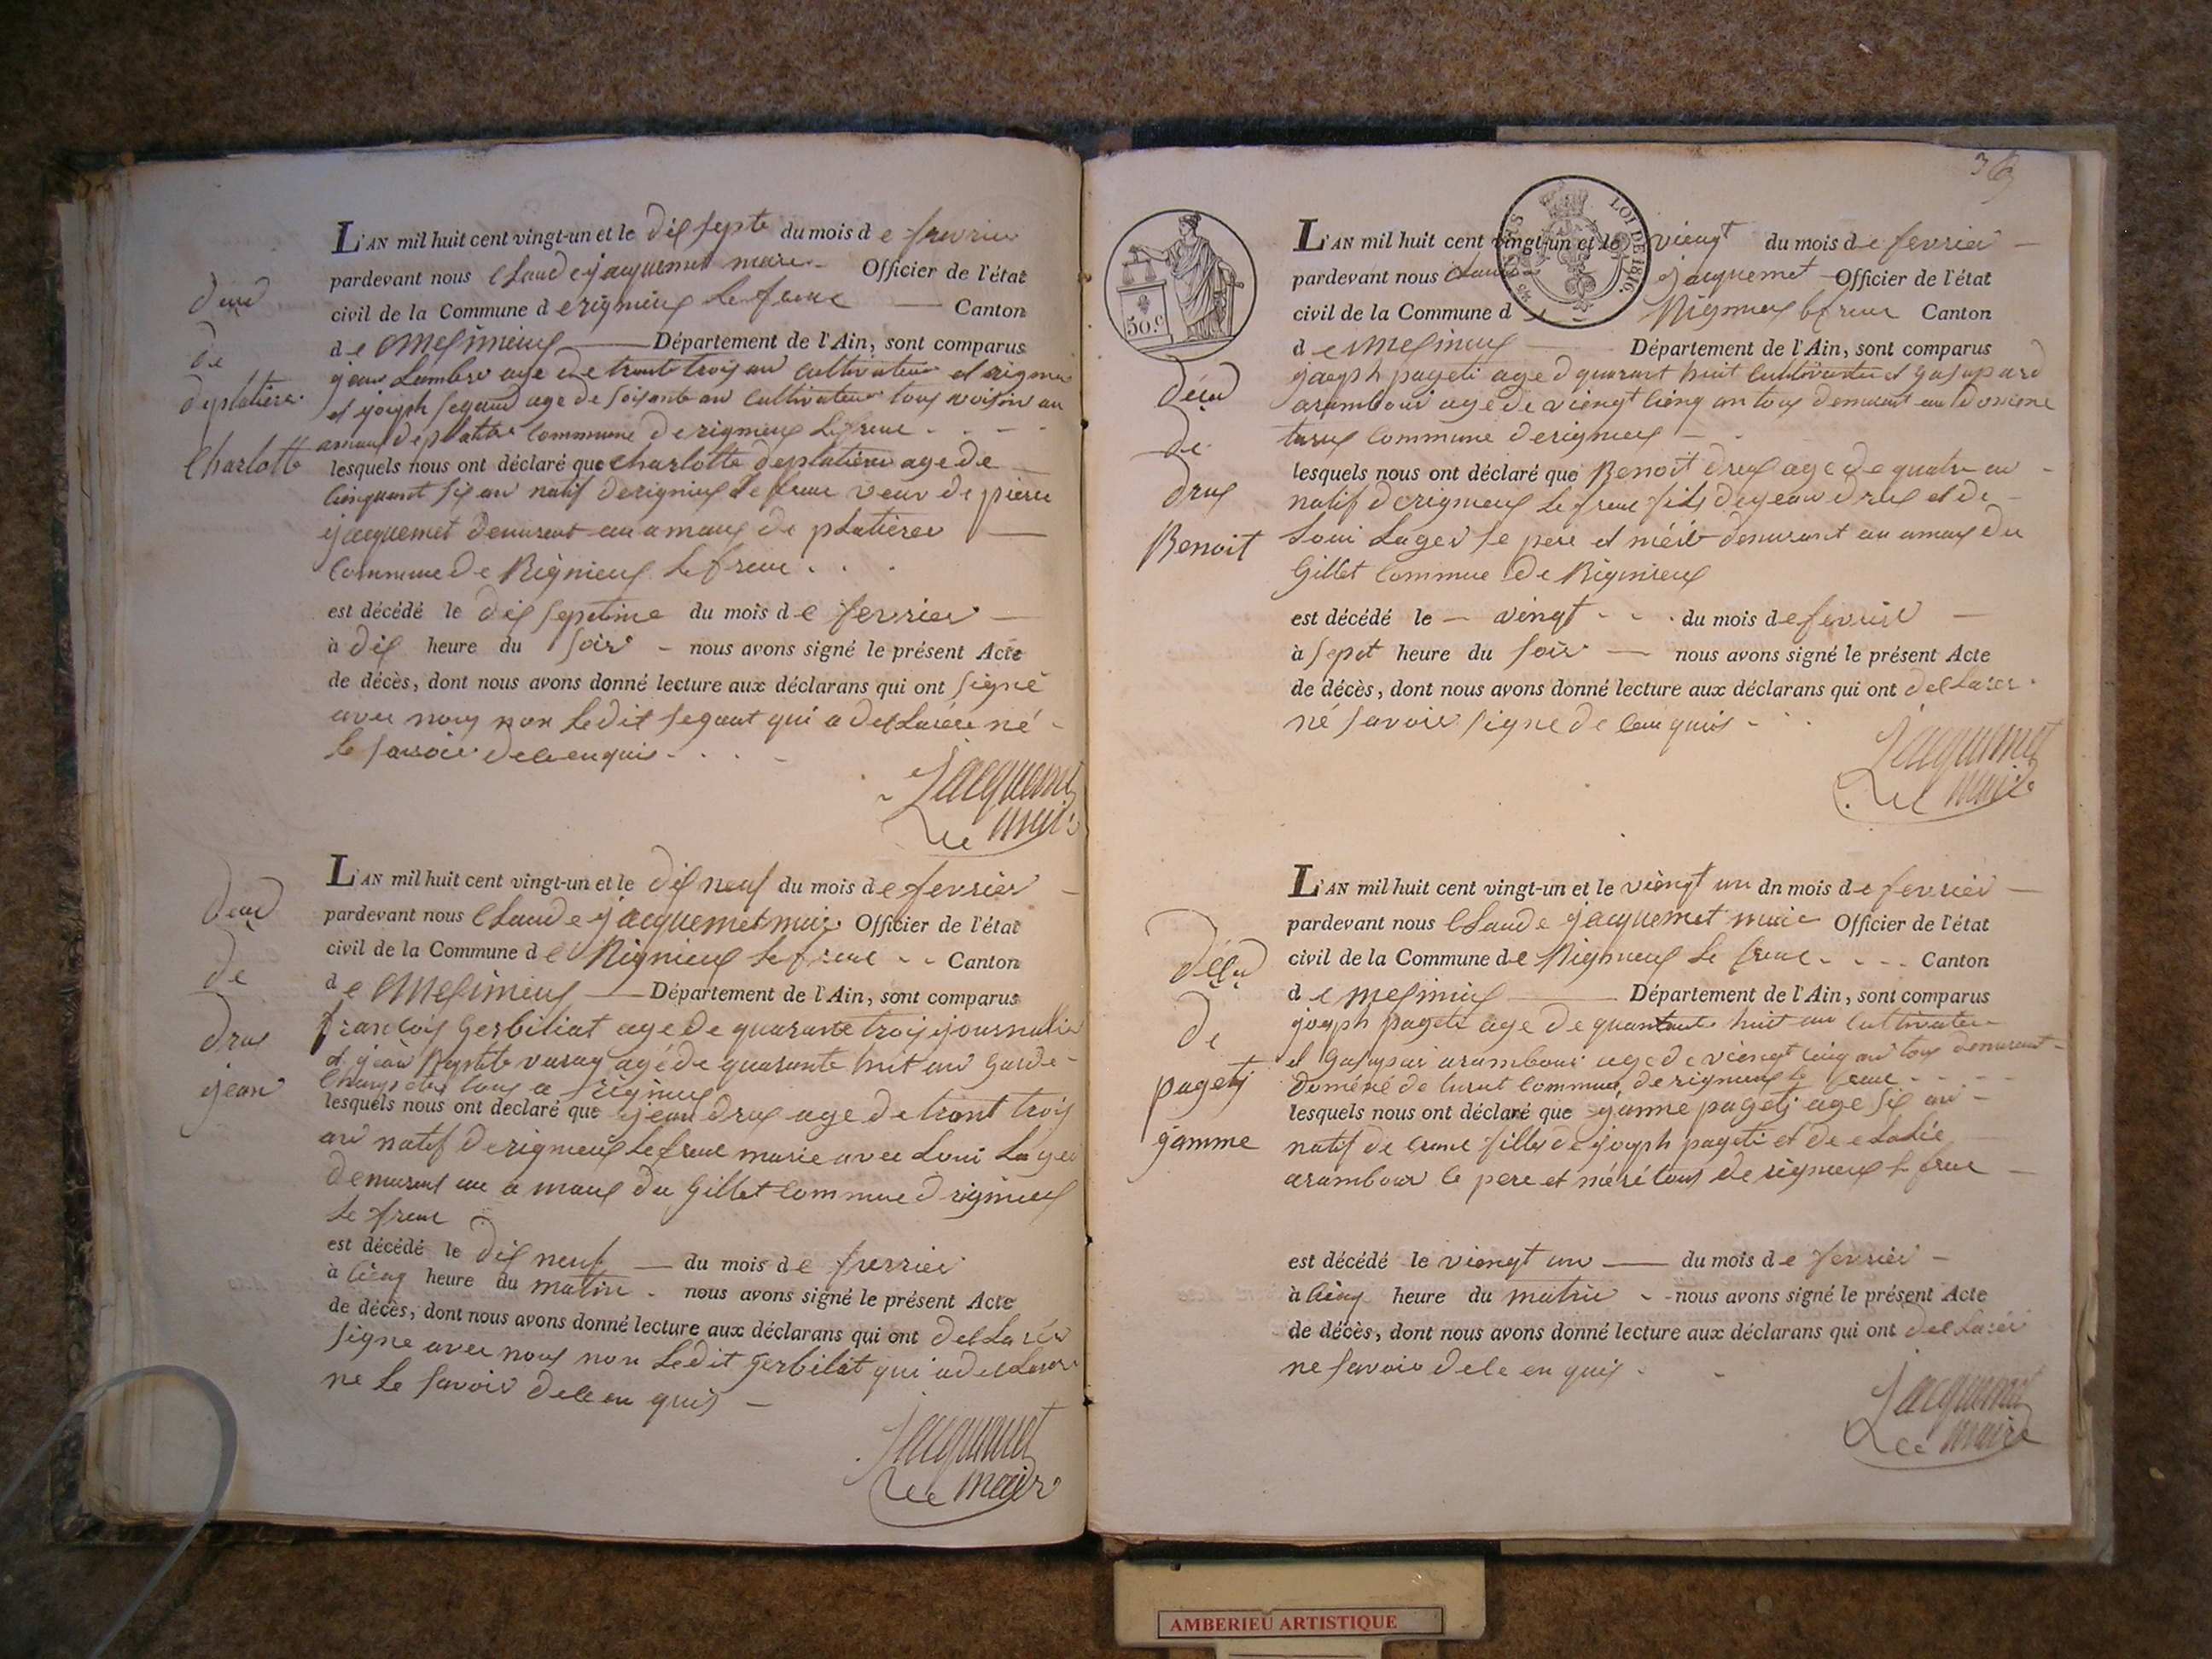 L'AN mil huit cent vingt-un et le dix septe du mois de fevrier
pardevant nous Claude jacquemet maire Officier de l'état
civil de la Commune de rignieux le franc Canton
de Meximieux Département de l'Ain, sont comparus
age de trante trois an cultivateur
et joseph segaud age de soisante an cultivateur tous voisin au
amaux de platiere commune de rignieux le franc
lesquels nous ont déclaré que Charlotte deplatiere age de
cinquant six an natif de rignieux le franc veuv de pierre
jacquemet demurent au amaux de platierer
Commune de Rignieux le franc
est décédé le dix septime du mois de fevrier
à dix heure du soir nous avons signé le présent Acte
de décès, dont nous avons donné lecture aux déclarans qui ont signé
avec nous non ledit segaut qui a dellarere né
le savoir dele enquis
Jacquemet
maire
Decé
de
deplatiere
Charlotte
L'AN mil huit cent vingt-un et le dix neuf du mois de fevrier
pardevant nous Claude jacquemet maire Officier de l'état
civil de la Commune de Rignieux le franc Canton
de Meximieux Département de l'Ain, sont comparus
francois Gerbiliat age de quarante trois journalier
et jean age de quarante huit an garde
champetre tous a Rignieux
lesquels nous ont declaré que jean drux age de trant trois
an natif de rignieux le franc marie avec Loui Lager
demurent au amaux du Gillet commune d rignieux
le franc
est décédé le dix neuf du mois de fevrier
à cinq heure du matin nous avons signé le présent Acte
de décès, dont nous avons donné lecture aux déclarans qui ont dellarer
signe avec nous non ledit gerbilat qui a dellarer
ne le savoir dele en quis
Jacquemet
maire
Decé
de
drux
jean
36
50 c
LOI DE 1816.
L'AN mil huit cent vingt-un et le viengt du mois de fevrier
pardevant nous Claude jacquemet Officier de l'état
civil de la Commune de Rignieux le franc Canton
de Meximieux Département de l'Ain, sont comparus
joseph pageti age d quarant huit cultivateur et gasapard
arambour age de viengt cinq an tous demurent au domene
turux commune de rignieux
lesquels nous ont déclaré que Benoit drux age de quatre an
natif de rignieux le franc fils de jean drux et de
Loui Lager le pere et mere demurant au amaux du
Gillet commue de Rignieux
est décédé le vingt du mois de fevrier
à sepet heure du soir nous avons signé le présent Acte
de décès, dont nous avons donné lecture aux déclarans qui ont dellarer
né savoir signe de len quis
Jacquemet
maire
Décé
de
drux
Benoit
L'AN mil huit cent vingt-un et le viengt un dn mois de fevrier
pardevant nous Claude jacquemet maire Officier de l'état
civil de la Commune de Rignieux le franc Canton
de meximieux Département de l'Ain, sont comparus
joseph pageti age de quarante huit an cultivateur
et arambour age de viengt cinq an tous demurant
doméné de turut commune de rignieux le franc
lesquels nous ont déclaré que janne pagetj age six an
natif de crane fille de joseph pageti et de
arambour le pere et méré tous de rignieux le franc
est décédé le viengt un du mois de fevrier
à cinq heure du matin nous avons signé le présent Acte
de décès, dont nous avons donné lecture aux déclarans qui ont dellarer
ne savoir dele en quis
Jacquemet
maire
Décé
de
pagetj
jamme
AMBERIEU ARTISTIQUE